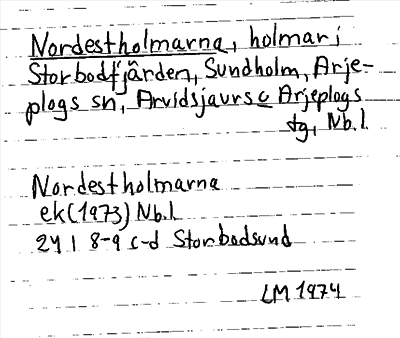 Nordestholmarna, holmar i
Storbodfjärden, Sundholm, Arje-
plogs sn, Arvidsjaurs o Arjeplogs
tg, Nb.l.
Nordestholmarna
ek (1973) Nb.l.
24 I 8-9 c-d Storbodsund
LM 1974